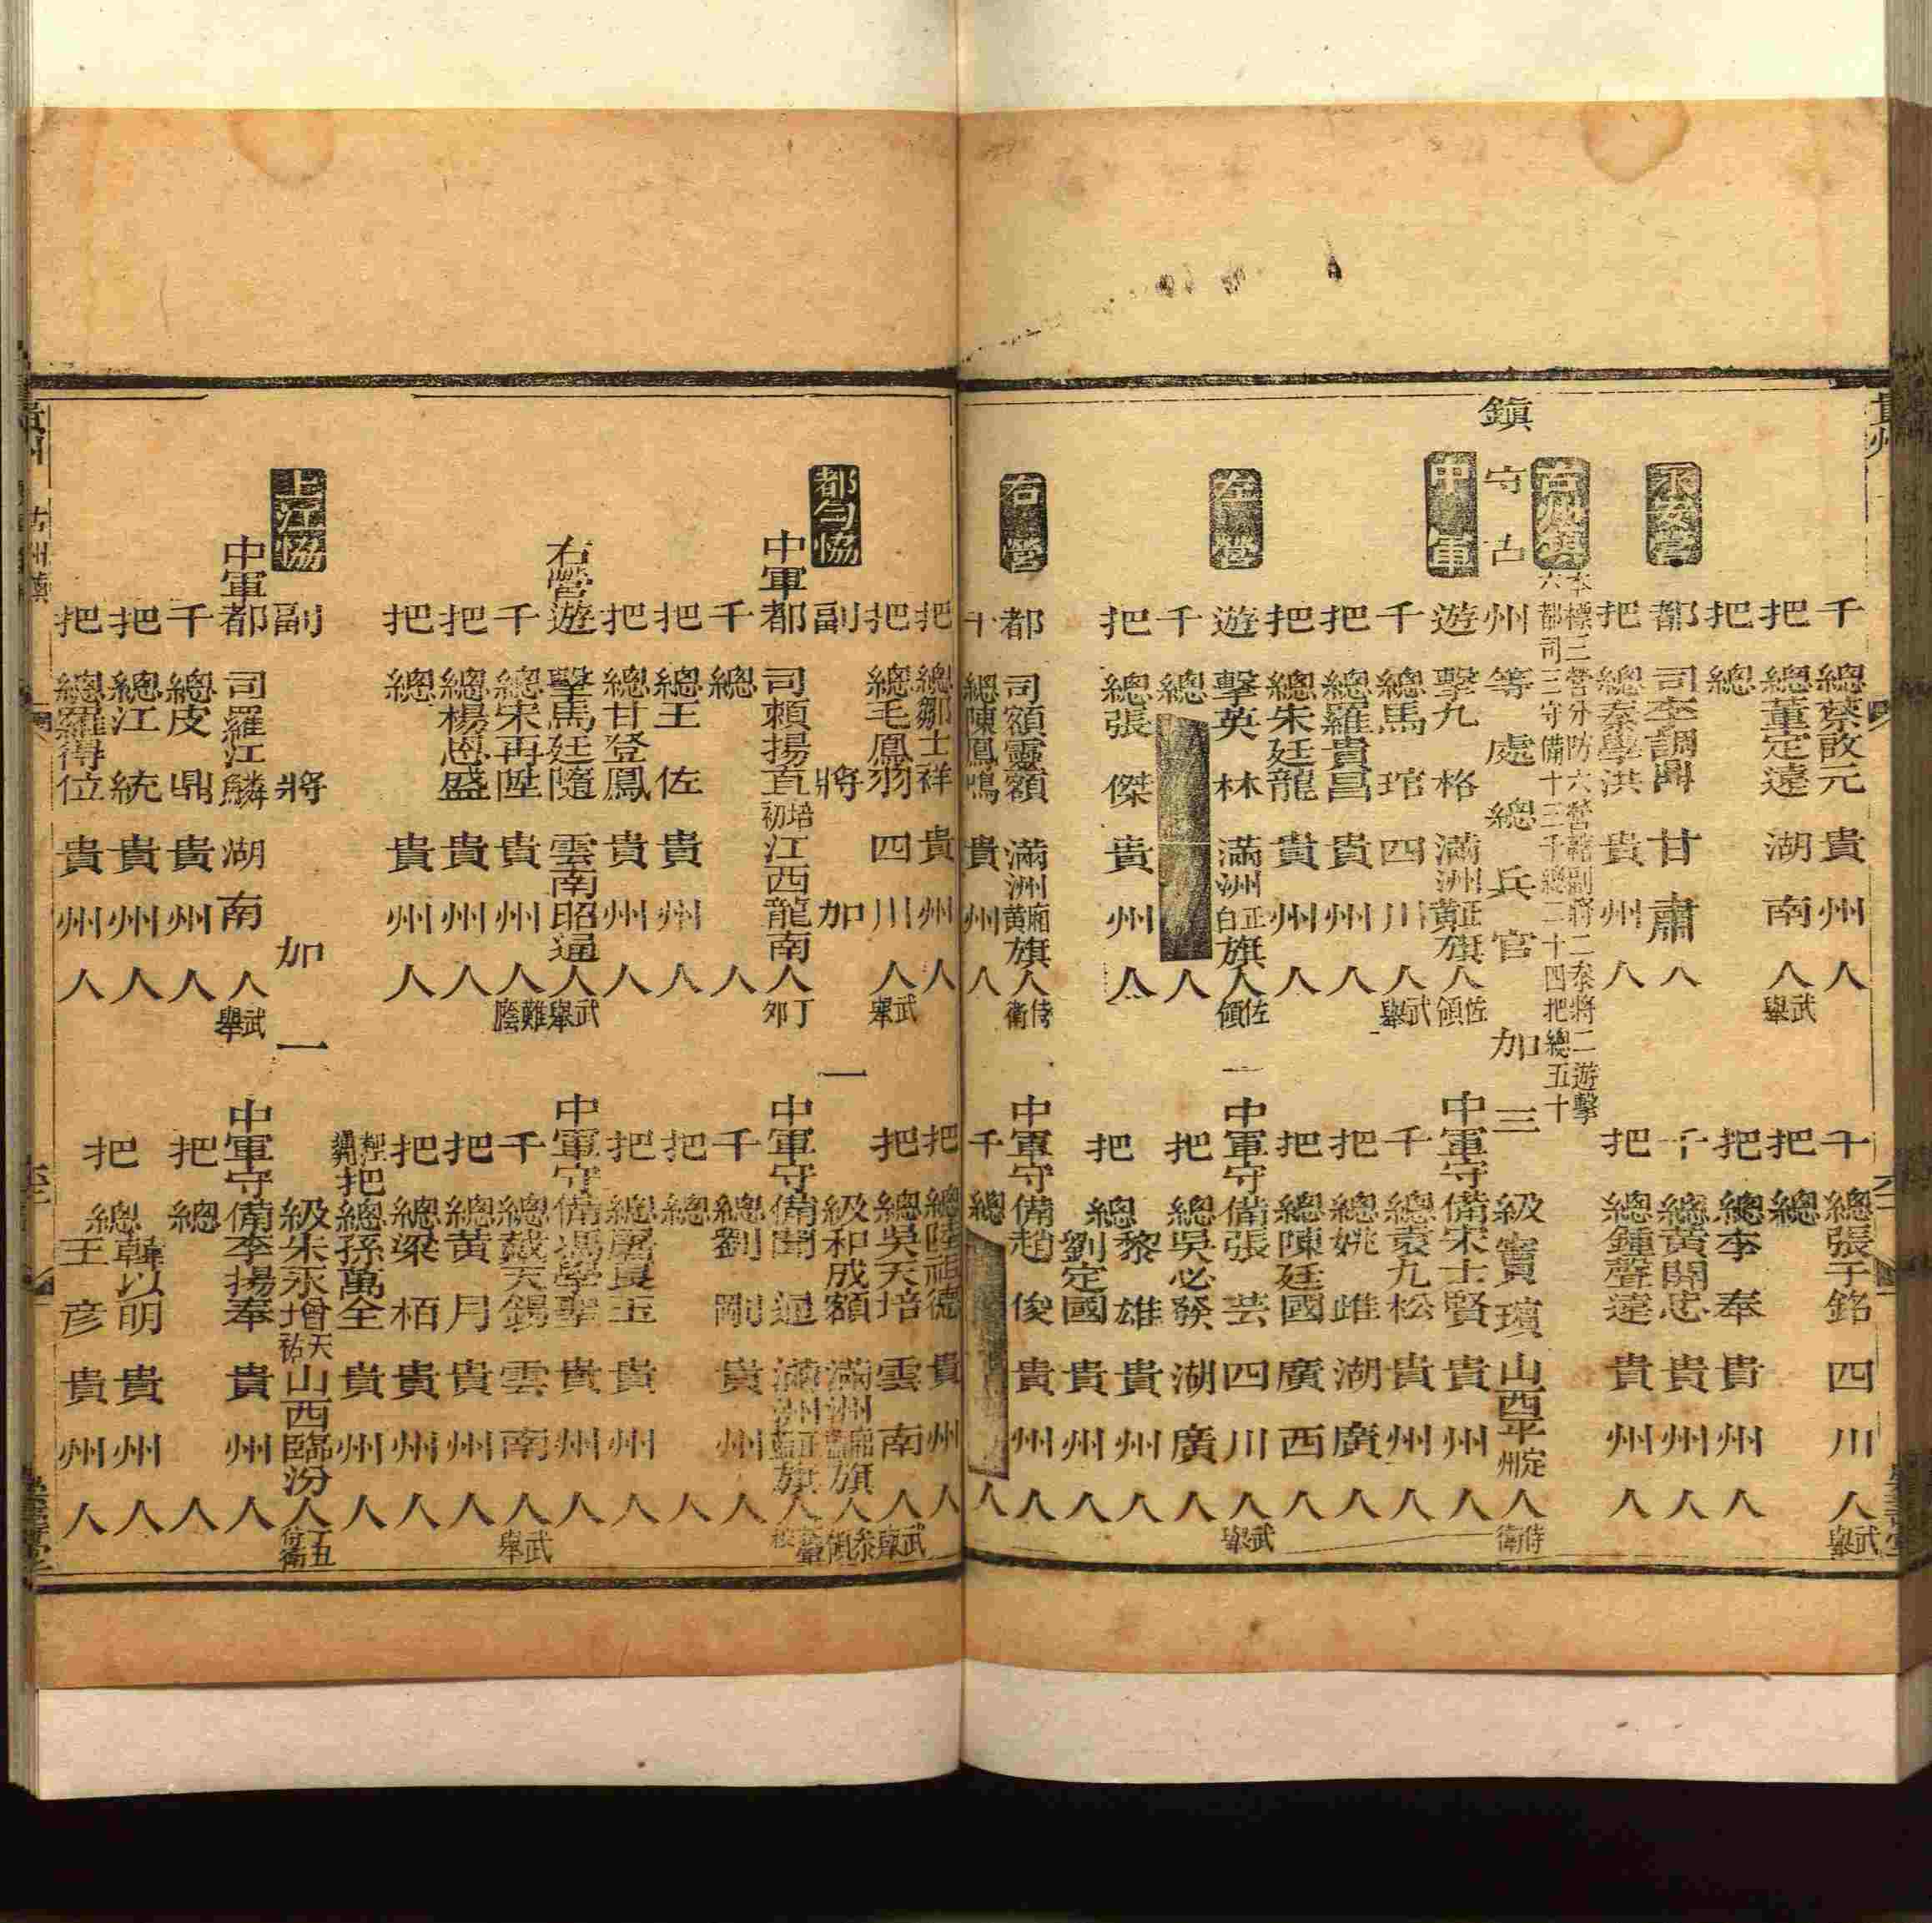 貴州
千總蔡啟元貴州人 千總張于銘四川人武舉
把總董定遠湖南人武舉 把總
把總 把總李奉貴州人
永安營
都司李調鼎甘肅人 千總黃開忠貴州人
把總秦學洪貴州人 把總鍾聲遠貴州人
古州鎮 本標三營分防六營轄副將二叅將二遊擊
六都司三守備十三千總二十四把總五十
鎮守古州等處總兵官加三級寶瑸山西平定州人侍衛
中軍
遊擊九格滿洲正黃旗人佐領 中軍守備宋士賢貴州人
千總馬琯四川人武舉 千總袁九松貴州人
把總羅貴昌貴州人 把總姚雎湖廣人
把總朱廷龍貴州人 把總陳廷國廣西人
左營
遊擊英林滿洲正白旗人佐領 中軍守備張芸四川人武舉
千總 人 把總吳必發湖廣人
把總張傑貴州人 把總黎雄貴州人
劉定國貴州人
右營
都司額靈額滿洲廂黃旗人侍衛 中軍守備趙俊貴州人
千總陳鳳鳴貴州人 千總 人
把總鄒士祥貴州人 把總陸祖德貴州人
把總毛鳳羽四川人武舉 把總吳天培雲南人武舉
都勻協
副將加一級和成額滿洲廂旗人叅領
中軍都司賴揚直培初江西龍南人丁卯 中軍守備聞逈滿洲正藍旗人
千總人 千總劉剛貴州人
把總王佐貴州人 把總人
把總甘登鳳貴州人 把總屠良玉貴州人
右營遊擊馬廷隨雲南昭通人武舉 中軍守備馮學聖貴州人
千總宋再陞貴州人難廕 千總戴天錫雲南人武舉
把總楊恩盛貴州人 把總黃月貴州人
把總貴州人 把總梁栢貴州人
把總孫萬全貴州人
上江協
副將加一級朱永增天祐山西臨汾人丁丑侍衛
中軍都司羅江麟湖南人武舉 中軍守備李揚奉貴州人
千總皮鼎貴州人 把總人
把總江統貴州人 把總韓以明貴州人
把總羅得位貴州人 王彦貴州人
貴州 古州鎮